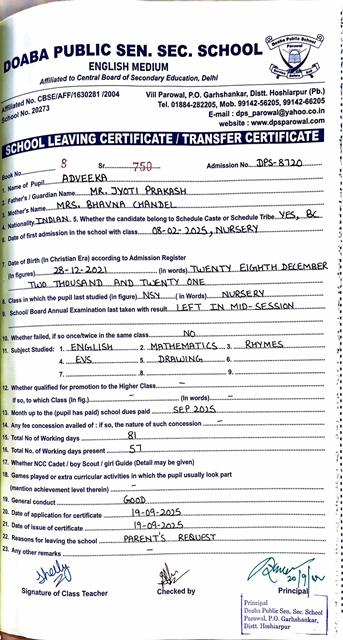 DOABA PUBLIC SEN. SEC. SCHOOL
ENGLISH MEDIUM
Affiliated to Central Board of Secondary Education, Delhi
Affiliated No. CBSE/AFF/1630281 /2004
School No. 20273
Vill Parowal, P.O. Garhshankar, Distt. Hoshiarpur (Pb.)
Tel. 01884-282205, Mob. 99142-56205, 99142-66205
E-mail : dps_parowal@yahoo.co.in
website : www.dpsparowal.com
SCHOOL LEAVING CERTIFICATE / TRANSFER CERTIFICATE
Book No. 8 Sr. 750 Admission No. DPS-8720
1. Name of Pupil ADVEEKA
2. Father's / Guardian Name MR. JYOTI PRAKASH
3. Mother's Name MRS. BHAVNA CHANDEL
4. Nationality INDIAN 5. Whether the candidate belong to Schedule Caste or Schedule Tribe YES, BC
6. Date of first admission in the school with class 08-02-2025, NURSERY
7. Date of Birth (In Christian Era) according to Admission Register
(In figures) 28-12-2021 (in words) TWENTY EIGHTH DECEMBER
TWO THOUSAND AND TWENTY ONE
8. Class in which the pupil last studied (in figure) NSY (in Words) NURSERY
9. School/ Board Annual Examination last taken with result LEFT IN MID-SESSION
10. Whether failed, if so once/twice in the same class NO
11. Subject Studied: 1. ENGLISH 2. MATHEMATICS 3. RHYMES
4. EVS 5. DRAWING 6.
7. 8. 9.
12. Whether qualified for promotion to the Higher Class –
If so, to which Class (In fig.) – (In words) –
13. Month up to the (pupil has paid) school dues paid SEP 2025
14. Any fee concession availed of : if so, the nature of such concession –
15. Total No of Working days 81
16. Total No. of Working days present 57
17. Whether NCC Cadet / boy Scout / girl Guide (Detail may be given)
18. Games played or extra curricular activities in which the pupil usually look part
(mention achievement level therein) –
19. General conduct GOOD
20. Date of application for certificate 19-09-2025
21. Date of issue of certificate 19-09-2025
22. Reasons for leaving the school PARENT'S REQUEST
23. Any other remarks –
Signature of Class Teacher Checked by Principal
Principal
Doaba Public Sen. Sec. School
Parowal, P.O. Garhshankar,
Distt. Hoshiarpur